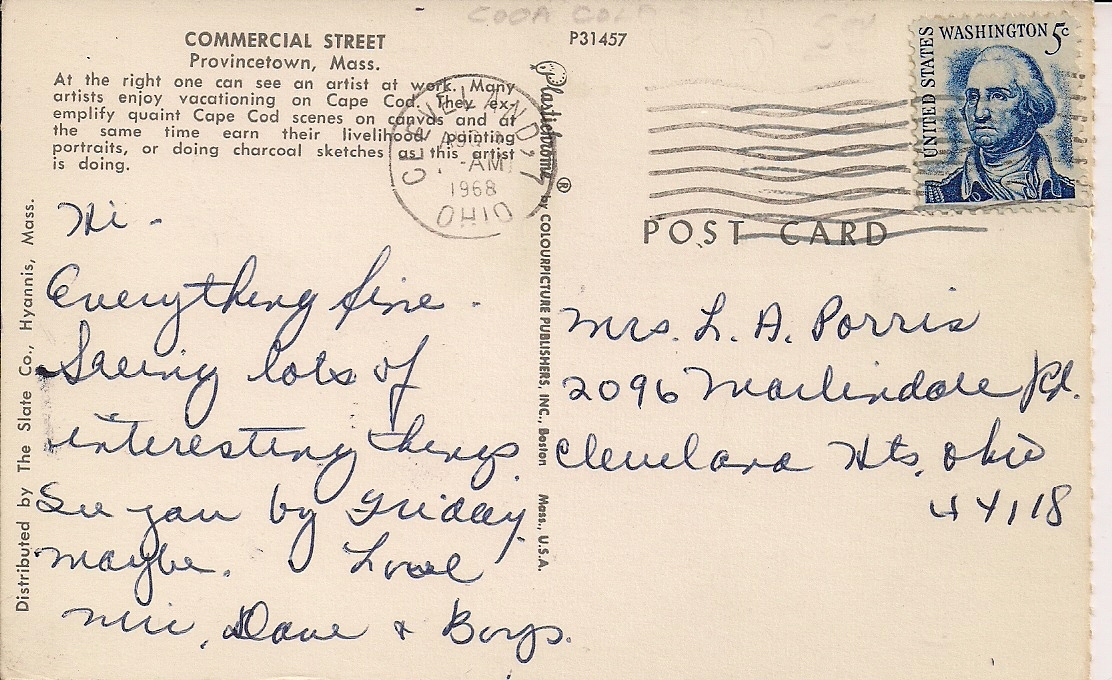 COMMERCIAL STREET
Provincetown, Mass.
At the right one can see an artist at work. Many
artists enjoy vacationing on Cape Cod. They ex-
emplify quaint Cape Cod scenes on canvas and at
the same time earn their livelihood painting
portraits, or doing charcoal sketches as this artist
is doing.
P31457
Plastichrome ® by COLOURPICTURE PUBLISHERS, INC., Boston Mass., U.S.A.
Distributed by The Slate Co., Hyannis, Mass.
CLEVELAND
AM
1968
OHIO
UNITED STATES
WASHINGTON 5c
POST CARD
Hi -
Everything fine -
Seeing lots of
interesting things
See you by Friday
maybe. Love
Mii, Dave & Boys.
Mrs. L. A. Porris
2096 Marlindale Rd.
Cleveland Hts, Ohio
44118